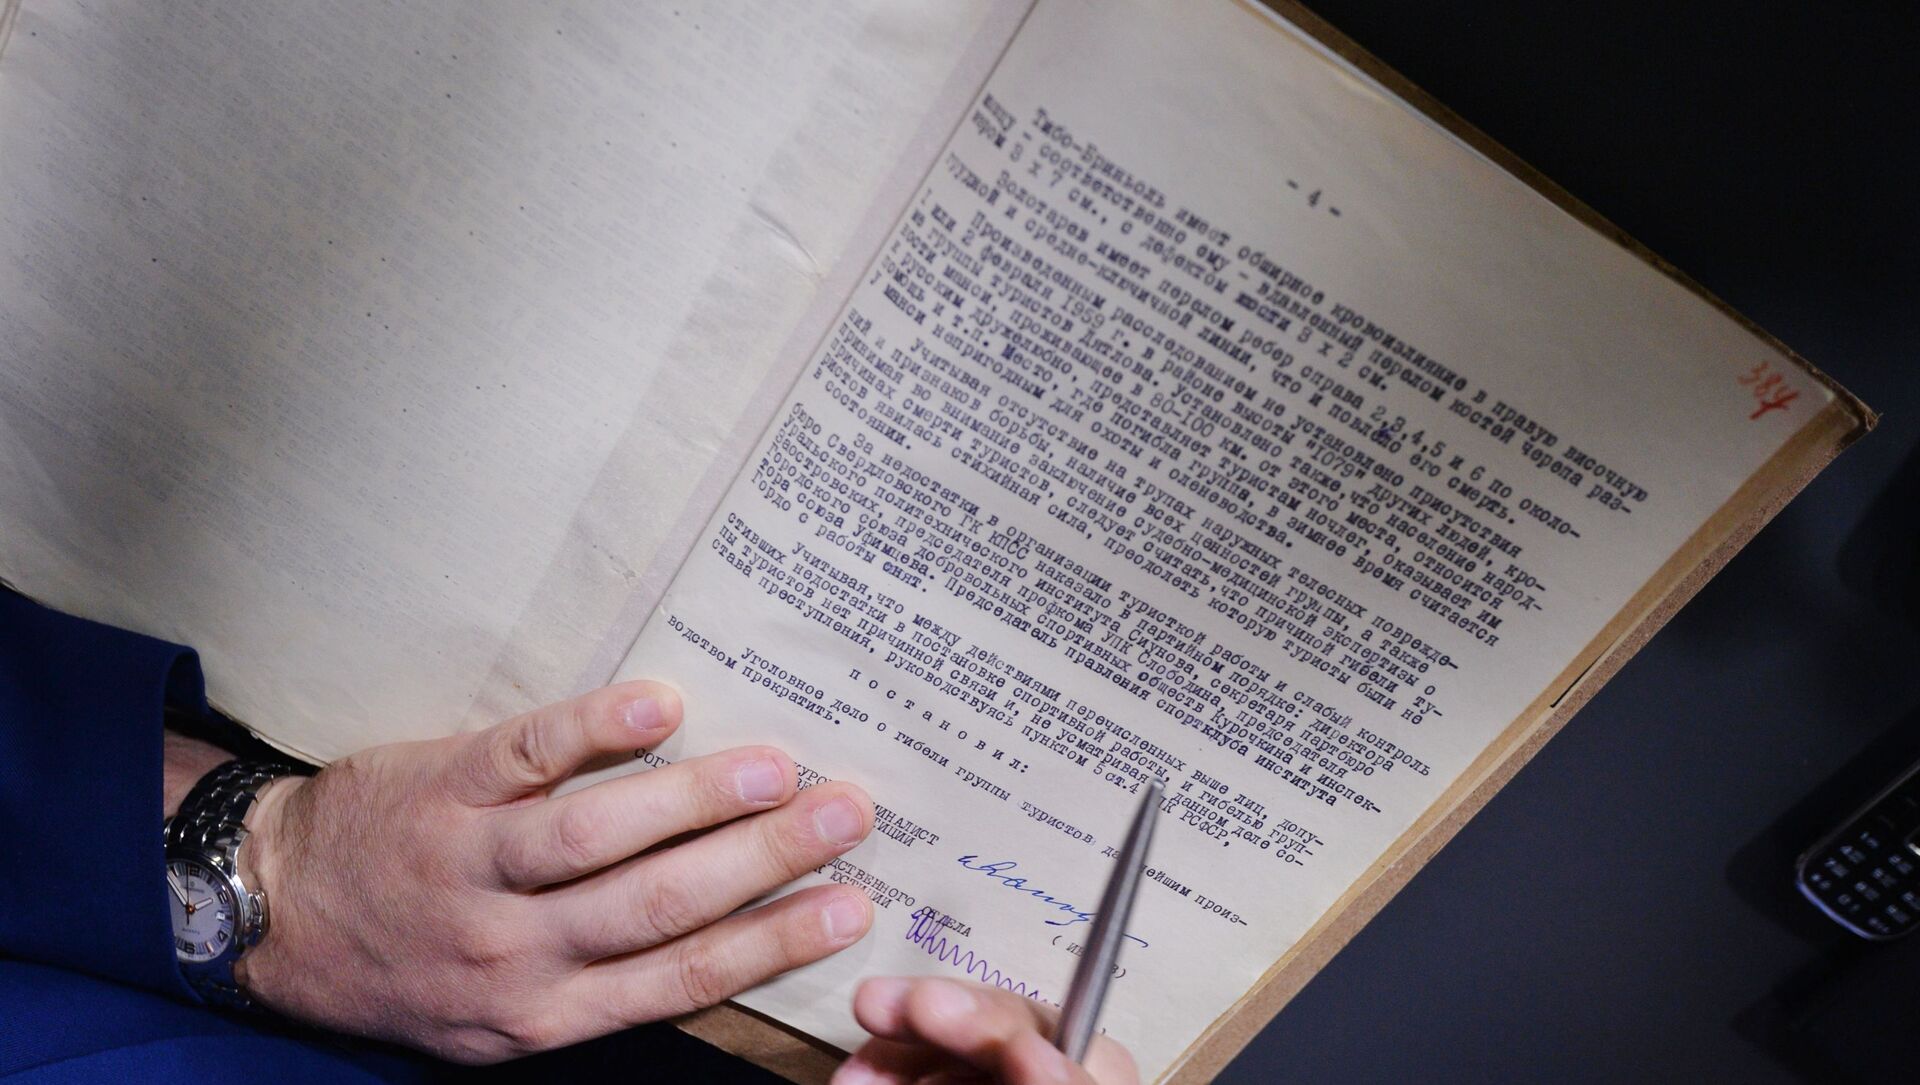 - 4 -
384
Тибо-Бриньоль имеет обширное кровоизлияние в правую височную
мышцу - соответственно ему - вдавленный перелом костей черепа раз-
мером 3 х 7 см., с дефектом кости 3 х 2 см.
Золотарев имеет перелом ребер справа 2,3,4,5 и 6 по около-
грудной и средне-ключичной линии, что и повлекло его смерть.
Произведенным расследованием не установлено присутствия
1 или 2 февраля 1959 г. в районе высоты "1079" других людей, кро-
ме группы туристов Дятлова. Установлено также,что население народ-
ности манси, проживающее в 80-100 км. от этого места, относится
к русским дружелюбно, представляет туристам ночлег, оказывает им
помощь и т.п. Место, где погибла группа, в зимнее время считается
у манси непригодным для охоты и оленеводства.
Учитывая отсутствие на трупах наружных телесных поврежде-
ний и признаков борьбы, наличие всех ценностей группы, а также
принимая во внимание заключение судебно-медицинской экспертизы о
причинах смерти туристов, следует считать,что причиной гибели ту-
ристов явилась стихийная сила, преодолеть которую туристы были не
в состоянии.
За недостатки в организации туристкой работы и слабый контроль
бюро Свердловского ГК КПСС наказало в партийном порядке: директора
Уральского политехнического института Сиунова, секретаря партбюро
Заостровских, председателя профкома УПК Слободина, председателя
городского союза добровольных спортивных обществ Курочкина и инспек-
тора союза Уфимцева. Председатель правления спортклуба института
Гордо с работы снят.
Учитывая,что между действиями перечисленных выше лиц, допу-
стивших недостатки в постановке спортивной работы, и гибелью груп-
пы туристов нет причинной связи и, не усматривая в данном деле со-
става преступления, руководствуясь пунктом 5 ст.4 УПК РСФСР,
п о с т а н о в и л:
Уголовное дело о гибели группы туристов дальнейшим произ-
водством прекратить.
МИНАЛИСТ
ТИЦИИ
ДСТВЕННОГО ОТДЕЛА
ЮСТИЦИИ